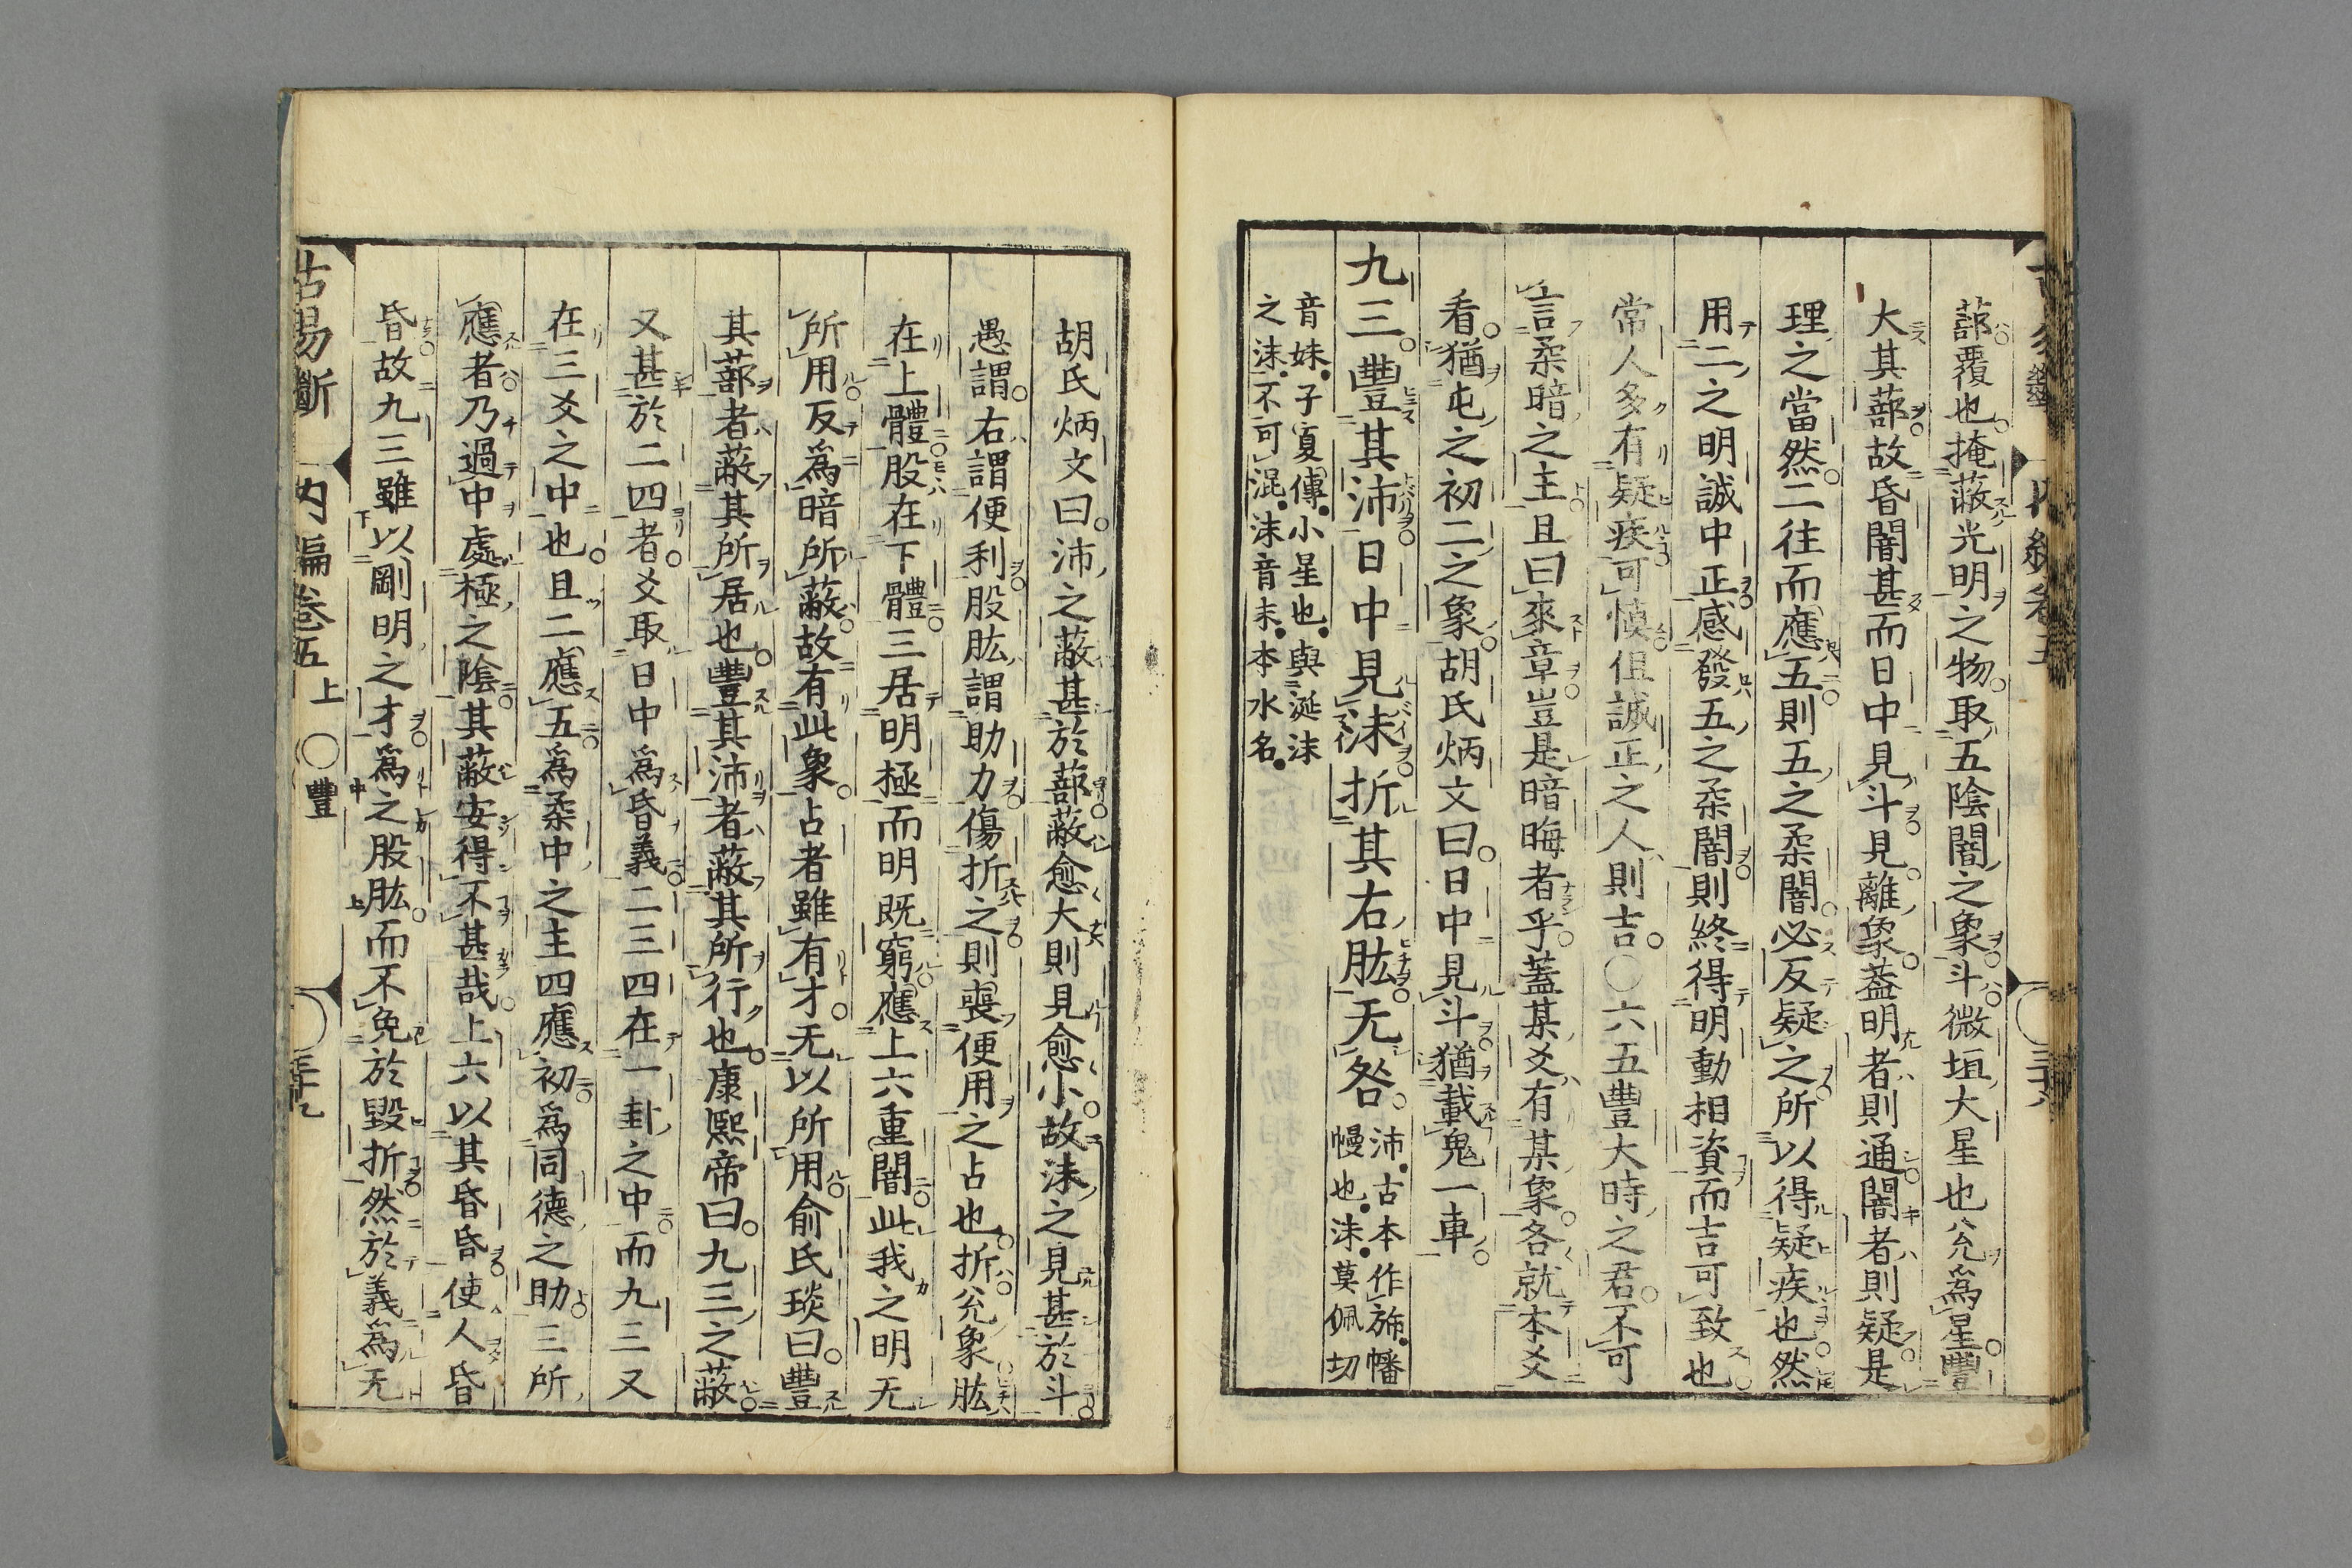 蔀覆也掩蔽光明之物取五陰闇之象斗微垣大星也兊爲星豐
大其蔀故昏闇甚而日中見斗見離象葢明者則通闇者則疑是
理之當然二往而應五則五之柔闇必反疑之所以得疑疾也然
用二之明誠中正感發五之柔闇則終得明動相資而吉可致也
常人多有疑疾可愼但誠正之人則吉○六五豐大時之君不可
言柔暗之主且曰來章豈是暗晦者乎蓋某爻有某象各就本爻
看猶屯之初二之象胡氏炳文曰日中見斗猶載鬼一車
九三豐其沛日中見沬折其右肱无咎
沛古本作旆幡
幔也沬莫佩切
音妹子夏傳小星也與涎沫
之沫不可混沬音末本水名
胡氏炳文曰沛之蔽甚於蔀蔽愈大則見愈小故沬之見甚於斗
愚謂右謂便利股肱謂助力傷折之則喪便用之占也折兊象肱
在上體股在下體三居明極而明既窮應上六重闇此我之明无
所用反爲暗所蔽故有此象占者雖有才无以所用俞氏琰曰豐
其蔀者蔽其所居也豐其沛者蔽其所行也康熙帝曰九三之蔽
又甚於二四者爻取日中爲昏義二三四在一卦之中而九三又
在三爻之中也且二應五爲柔中之主四應初爲同德之助三所
應者乃過中處極之陰其蔽安得不甚哉上六以其昏昏使人昏
昏故九三雖以剛明之才爲之股肱而不免於毀折然於義爲无
古易斷
内編卷五
上
○豐
三十九